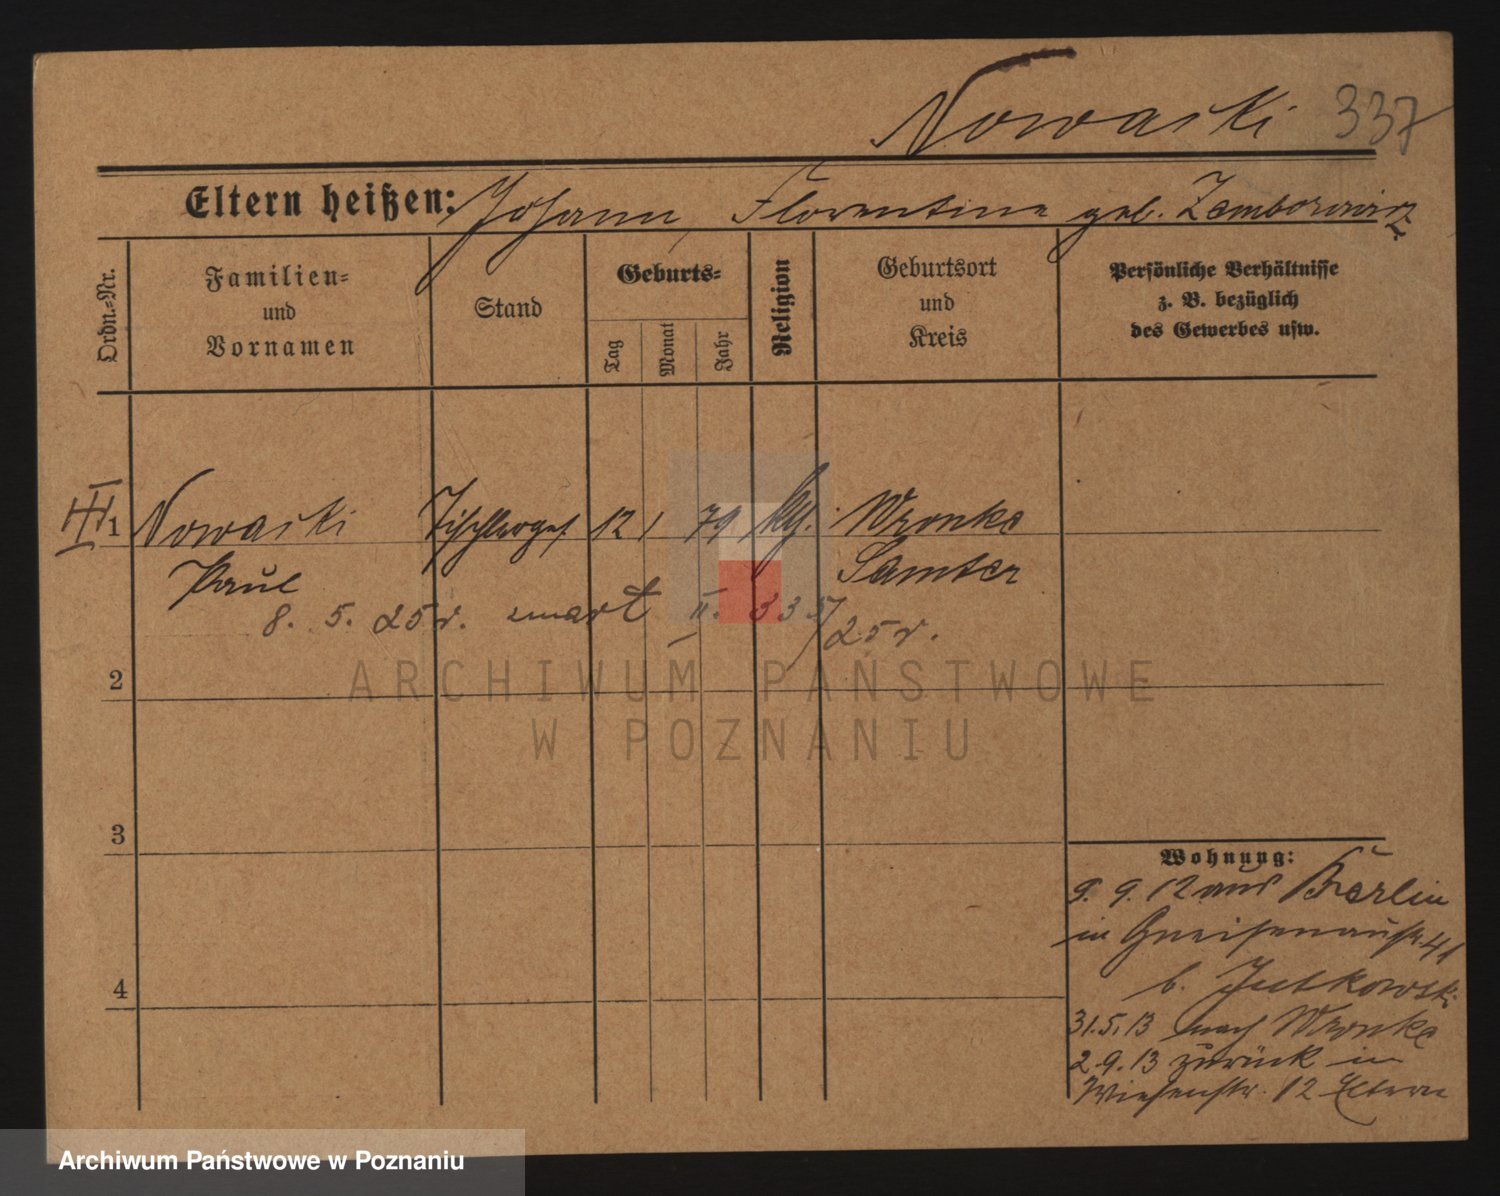 Nowacki 337
Eltern heißen: Johann, Florentine geb. Zamborowicz
Ordn.=Nr.
Familien=
und
Vornamen
Stand
Geburts=
Tag
Monat
Jahr
Religion
Geburtsort
und
Kreis
Persönliche Verhältnisse
z. B. bezüglich
des Gewerbes usw.
III 1 Nowacki Tischlerges. 12 1 79 kth. Wronke
Paul Samter
8. 5. 25 r. zmarł II. 335/25 r.
2
3
4
Wohnung:
9. 9. 12 aus Berlin
in Gneisenaustr. 41
b. Jutkowski
31.5.13 nach Wronke
2.9.13 zurück in
Wiesenstr. 12 Eltern
ARCHIWUM PAŃSTWOWE
W POZNANIU
Archiwum Państwowe w Poznaniu